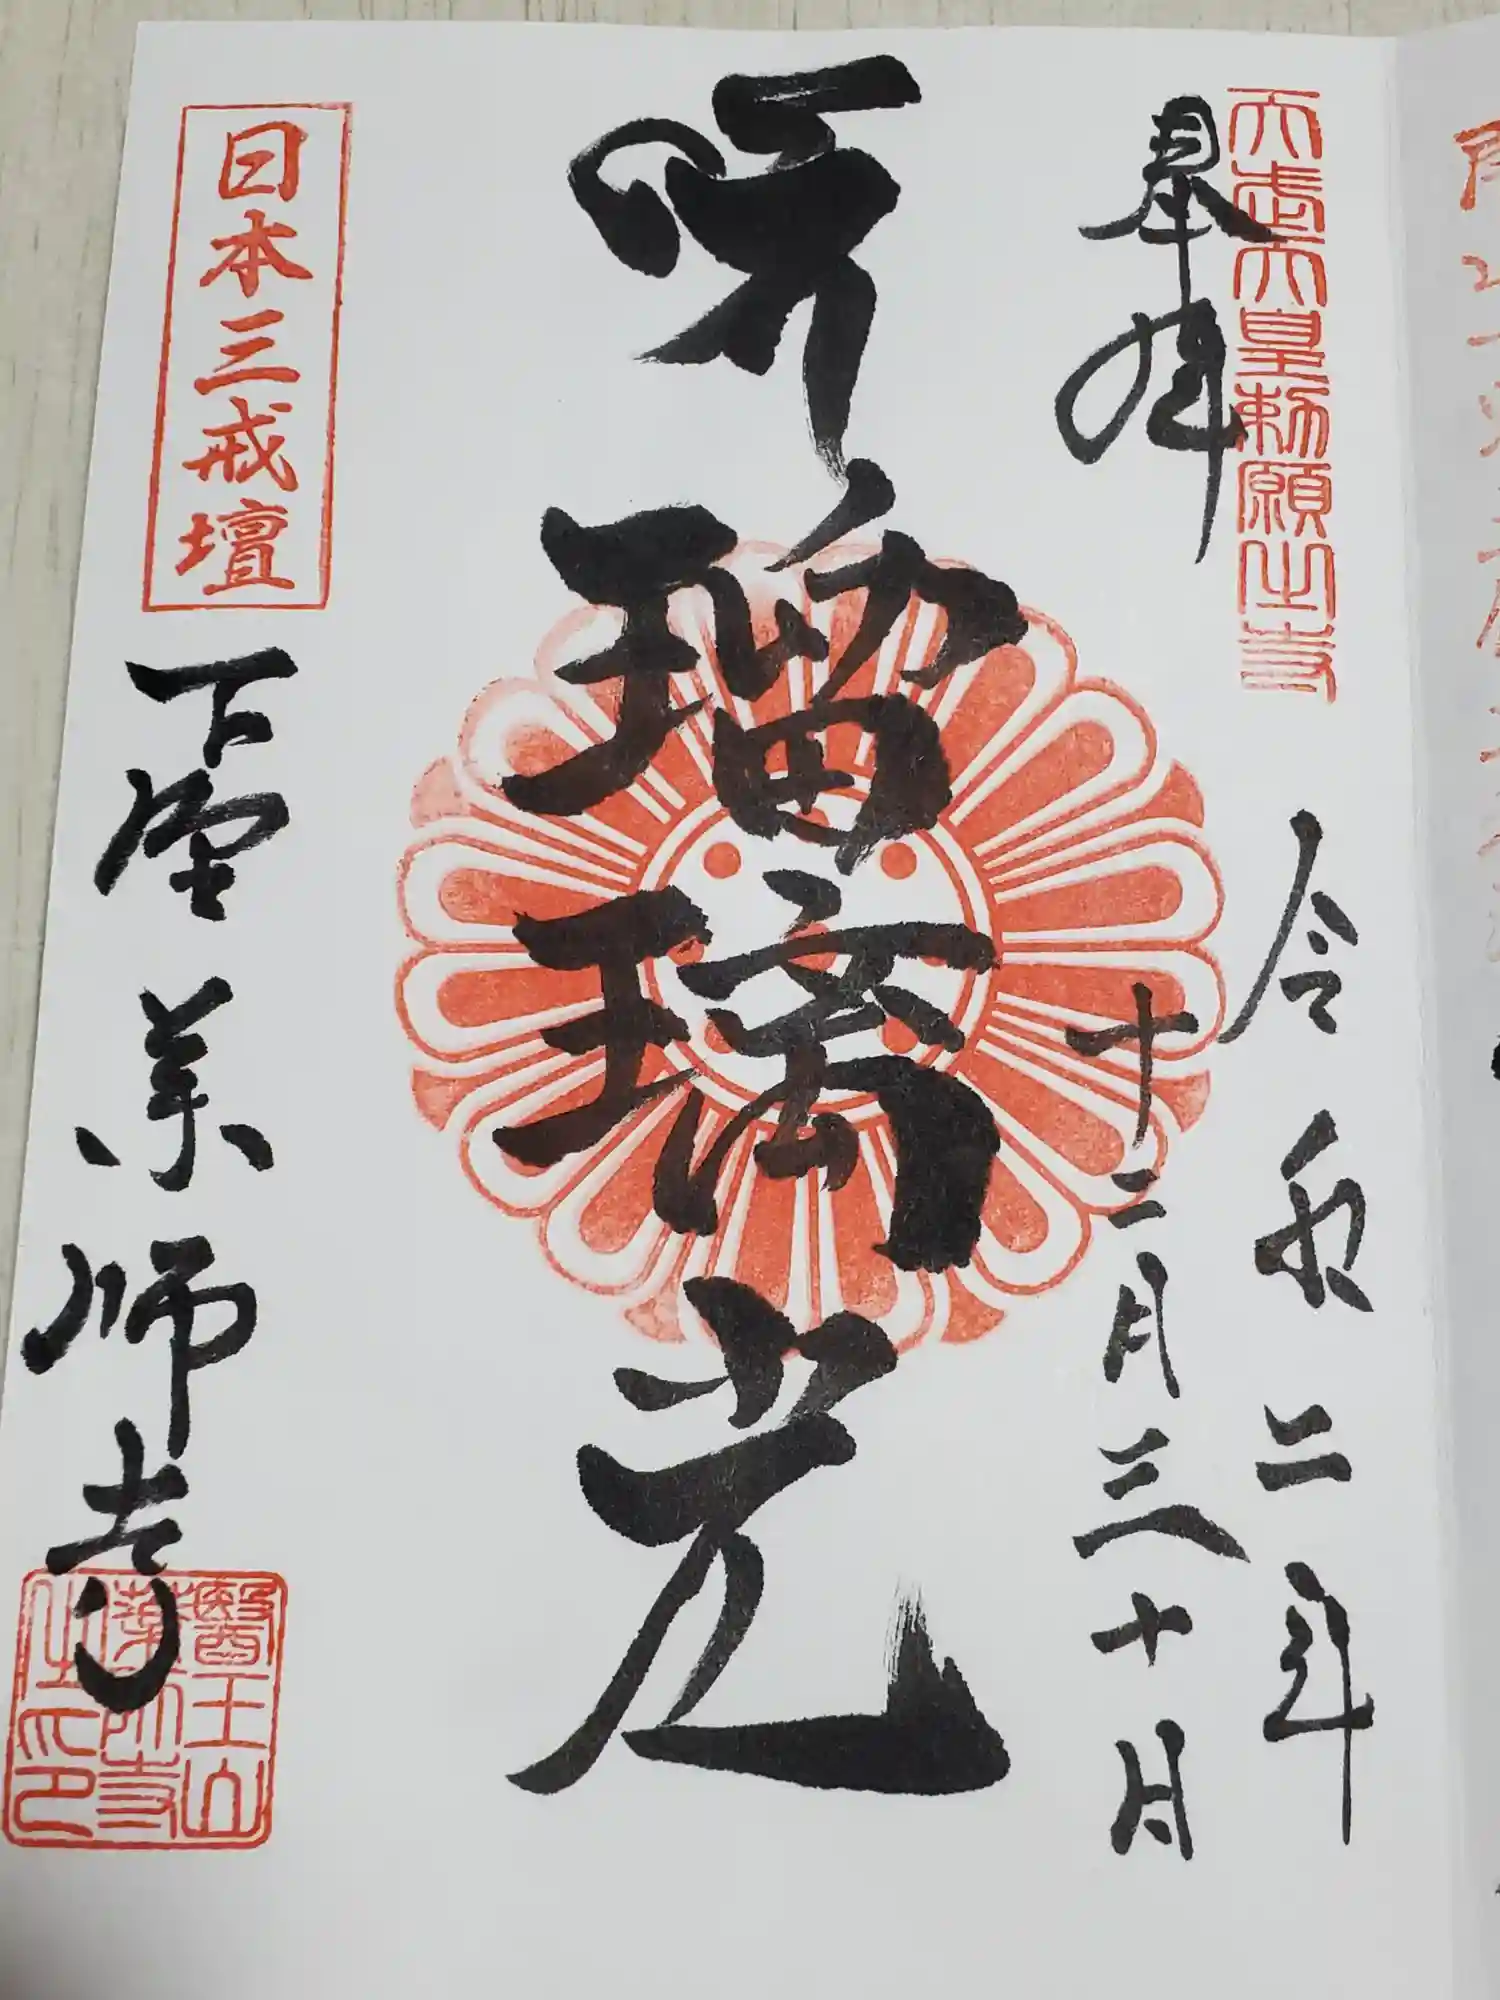 天武天皇勅願之寺
奉拝
令和二年
十二月三十日
瑠璃光
日本三戒壇
下野薬師寺
醫王山
薬師寺
之印